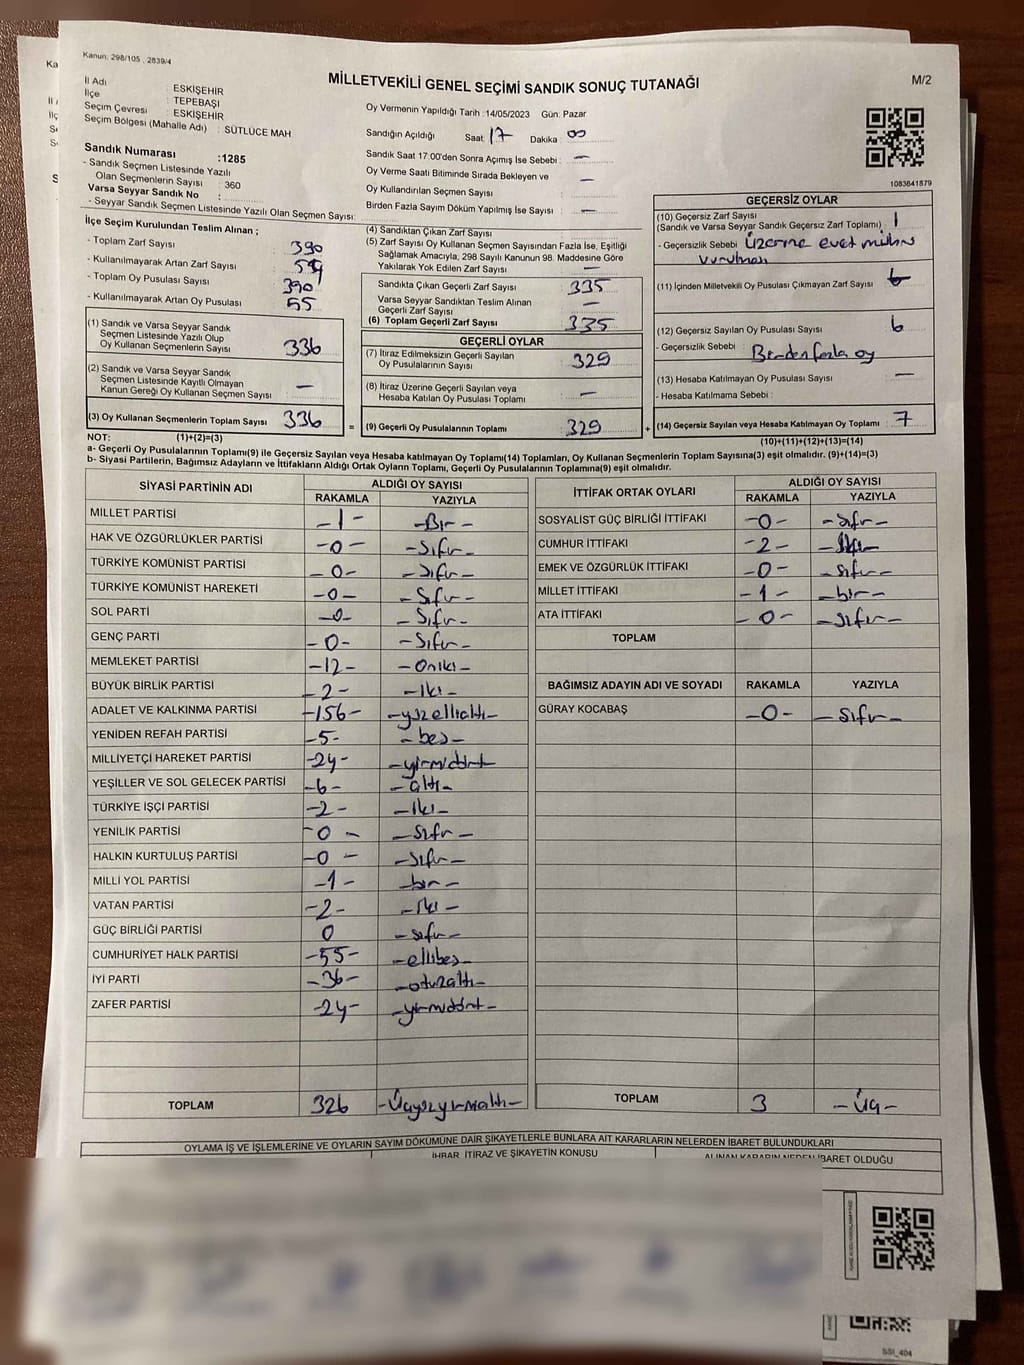 Kanun: 298/105 , 2839/4
MİLLETVEKİLİ GENEL SEÇİMİ SANDIK SONUÇ TUTANAĞI
M/2
İl Adı : ESKİŞEHİR
İlçe : TEPEBAŞI
Seçim Çevresi : ESKİŞEHİR
Seçim Bölgesi (Mahalle Adı) : SÜTLÜCE MAH.
Sandık Numarası :1285
- Sandık Seçmen Listesinde Yazılı
Olan Seçmenlerin Sayısı : 360
Varsa Seyyar Sandık No :
- Seyyar Sandık Seçmen Listesinde Yazılı Olan Seçmen Sayısı:
Oy Vermenin Yapıldığı Tarih :14/05/2023 Gün: Pazar
Sandığın Açıldığı Saat: 17 Dakika : 00
Sandık Saat 17:00'den Sonra Açılmış İse Sebebi : —
Oy Verme Saati Bitiminde Sırada Bekleyen ve —
Oy Kullandırılan Seçmen Sayısı :
Birden Fazla Sayım Döküm Yapılmış İse Sayısı : —
1083641879
İlçe Seçim Kurulundan Teslim Alınan ;
- Toplam Zarf Sayısı : 390
- Kullanılmayarak Artan Zarf Sayısı :
- Toplam Oy Pusulası Sayısı : 390
- Kullanılmayarak Artan Oy Pusulası : 55
(1) Sandık ve Varsa Seyyar Sandık
Seçmen Listesinde Yazılı Olup
Oy Kullanan Seçmenlerin Sayısı : 336
(2) Sandık ve Varsa Seyyar Sandık
Seçmen Listesinde Kayıtlı Olmayan
Kanun Gereği Oy Kullanan Seçmen Sayısı : —
(3) Oy Kullanan Seçmenlerin Toplam Sayısı : 336
=
(4) Sandıktan Çıkan Zarf Sayısı :
(5) Zarf Sayısı Oy Kullanan Seçmen Sayısından Fazla İse, Eşitliği
Sağlamak Amacıyla, 298 Sayılı Kanunun 98. Maddesine Göre
Yakılarak Yok Edilen Zarf Sayısı : —
Sandıkta Çıkan Geçerli Zarf Sayısı : 335
Varsa Seyyar Sandıktan Teslim Alınan
Geçerli Zarf Sayısı : —
(6) Toplam Geçerli Zarf Sayısı : 335
GEÇERLİ OYLAR
(7) İtiraz Edilmeksizin Geçerli Sayılan
Oy Pusulalarının Sayısı : 329
(8) İtiraz Üzerine Geçerli Sayılan veya
Hesaba Katılan Oy Pusulası Toplamı : —
(9) Geçerli Oy Pusulalarının Toplamı : 329
+
GEÇERSİZ OYLAR
(10) Geçersiz Zarf Sayısı
(Sandık ve Varsa Seyyar Sandık Geçersiz Zarf Toplamı) : 1
- Geçersizlik Sebebi : Üzerine evet mührü
vurulması
(11) İçinden Milletvekili Oy Pusulası Çıkmayan Zarf Sayısı :
(12) Geçersiz Sayılan Oy Pusulası Sayısı : 6
- Geçersizlik Sebebi : Birden fazla oy
(13) Hesaba Katılmayan Oy Pusulası Sayısı : —
- Hesaba Katılmama Sebebi :
(14) Geçersiz Sayılan veya Hesaba Katılmayan Oy Toplamı : 7
NOT: (1)+(2)=(3) (10)+(11)+(12)+(13)=(14)
a- Geçerli Oy Pusulalarının Toplamı(9) ile Geçersiz Sayılan veya Hesaba katılmayan Oy Toplamı(14) Toplamları, Oy Kullanan Seçmenlerin Toplam Sayısına(3) eşit olmalıdır. (9)+(14)=(3)
b- Siyasi Partilerin, Bağımsız Adayların ve İttifakların Aldığı Ortak Oyların Toplamı, Geçerli Oy Pusulalarının Toplamına(9) eşit olmalıdır.
SİYASİ PARTİNİN ADI ALDIĞI OY SAYISI
RAKAMLA YAZIYLA
MİLLET PARTİSİ -1- -Bir-
HAK VE ÖZGÜRLÜKLER PARTİSİ -0- -Sıfır-
TÜRKİYE KOMÜNİST PARTİSİ -0- -Sıfır-
TÜRKİYE KOMÜNİST HAREKETİ -0- -Sıfır-
SOL PARTİ -0- -Sıfır-
GENÇ PARTİ -0- -Sıfır-
MEMLEKET PARTİSİ -12- -Oniki-
BÜYÜK BİRLİK PARTİSİ -2- -iki-
ADALET VE KALKINMA PARTİSİ -156- -yüzellialtı-
YENİDEN REFAH PARTİSİ -5- -beş-
MİLLİYETÇİ HAREKET PARTİSİ -24- -yirmidört-
YEŞİLLER VE SOL GELECEK PARTİSİ -6- -altı-
TÜRKİYE İŞÇİ PARTİSİ -2- -iki-
YENİLİK PARTİSİ -0- -Sıfır-
HALKIN KURTULUŞ PARTİSİ -0- -Sıfır-
MİLLİ YOL PARTİSİ -1- -bir-
VATAN PARTİSİ -2- -iki-
GÜÇ BİRLİĞİ PARTİSİ 0 -sıfır-
CUMHURİYET HALK PARTİSİ -55- -ellibeş-
İYİ PARTİ -36- -otuzaltı-
ZAFER PARTİSİ -24- -yirmidört-
TOPLAM 326 -Üçyüzyirmialtı-
İTTİFAK ORTAK OYLARI ALDIĞI OY SAYISI
RAKAMLA YAZIYLA
SOSYALİST GÜÇ BİRLİĞİ İTTİFAKI -0- -Sıfır-
CUMHUR İTTİFAKI -2- -iki-
EMEK VE ÖZGÜRLÜK İTTİFAKI -0- -Sıfır-
MİLLET İTTİFAKI -1- -bir-
ATA İTTİFAKI -0- -Sıfır-
TOPLAM
BAĞIMSIZ ADAYIN ADI VE SOYADI RAKAMLA YAZIYLA
GÜRAY KOCABAŞ -0- -Sıfır-
TOPLAM 3 -Üç-
OYLAMA İŞ VE İŞLEMLERİNE VE OYLARIN SAYIM DÖKÜMÜNE DAİR ŞİKAYETLERLE BUNLARA AİT KARARLARIN NELERDEN İBARET BULUNDUKLARI
İHBAR, İTİRAZ VE ŞİKAYETİN KONUSU
ALINAN KARARIN NEDEN İBARET OLDUĞU
SSI_404